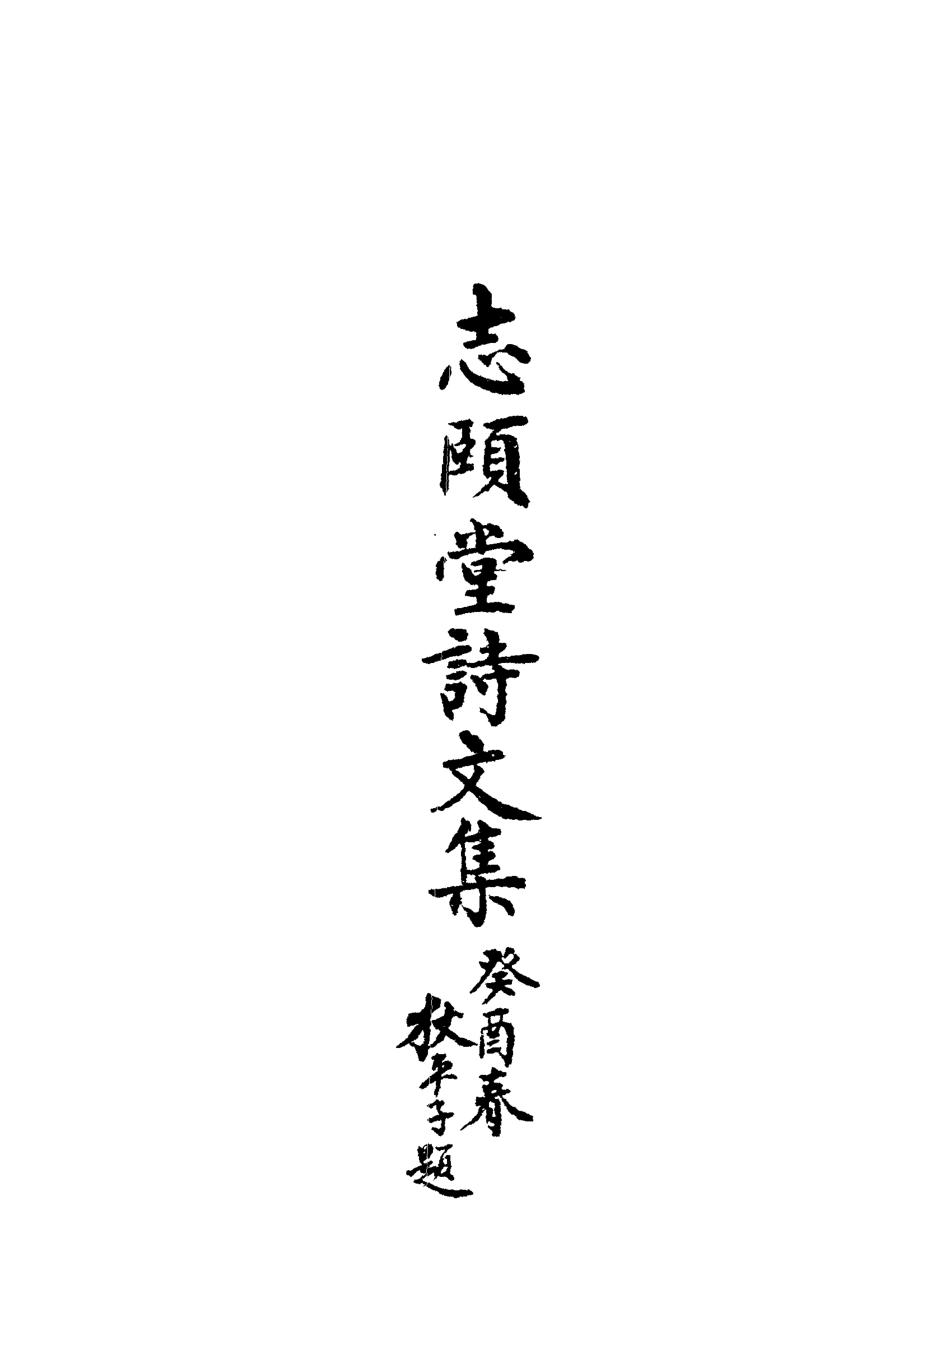 志頤堂詩文集
癸酉春
狄平子題